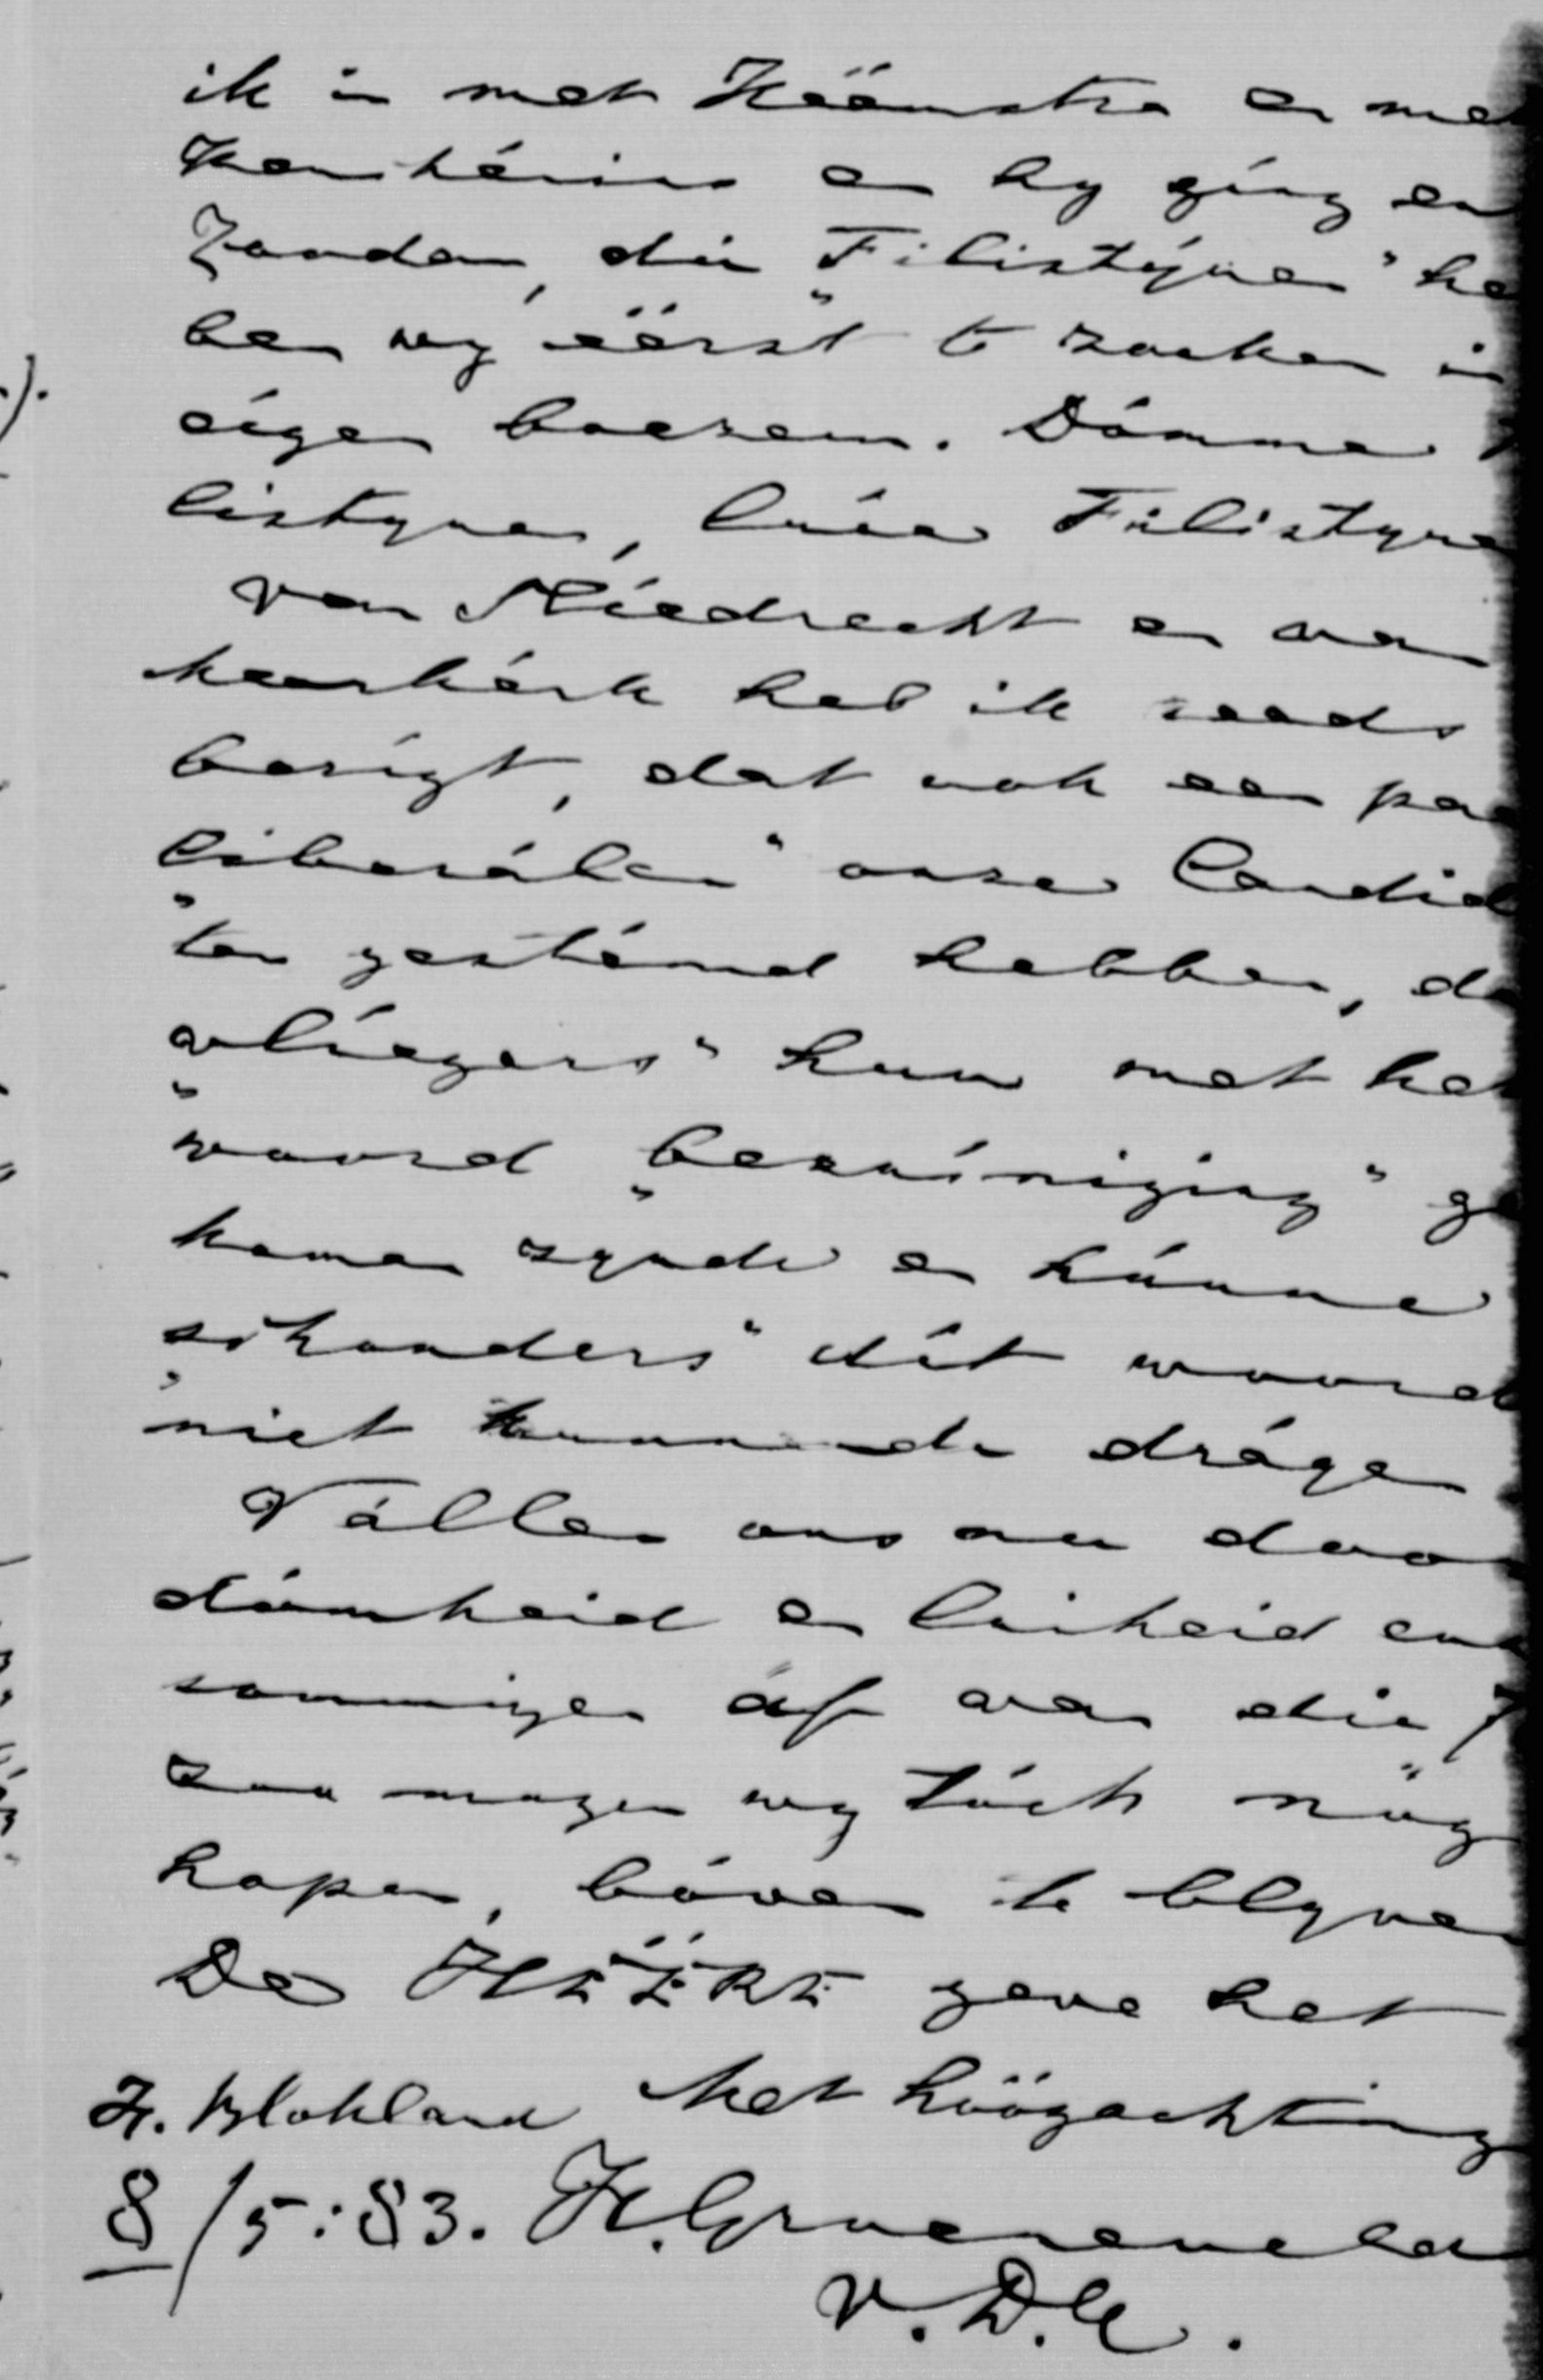 ik in met Héémstra en me
Keuchénius en hy ging en
Zonden, die „Filistýnen" he
ben wy éérst te zoeken in
eígen boezem. Dómme
listynen, luíe Filistyne
Van Slíedrecht en van
Meerkérk heb ik reeds
berígt, dat ook een pa
„liberálen" onze Candid
ten gestémd hebben, d
„vlíegers" hun met he
woord „bezuíniging" g
komen zynde en húnne
„schouders" dít woord
niet kunnende drágen
Vállen ons nu doo
dómheid en luiheid en
sommigen áf van die
zoo mogen wy tóch nóg
hopen, bóven te blyve
De HÉÉRE geve het
H. Blokland Met hóógachting
8/5:83. H. Groeneveld
V.D.M.